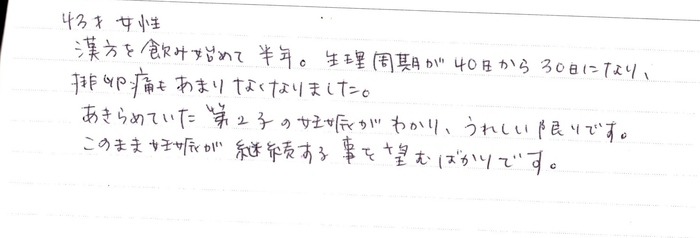 43才 女性
漢方を飲み始めて半年。生理周期が40日から30日になり、
排卵痛もあまりなくなりました。
あきらめていた第2子の妊娠がわかり、うれしい限りです。
このまま妊娠が継続する事を望むばかりです。